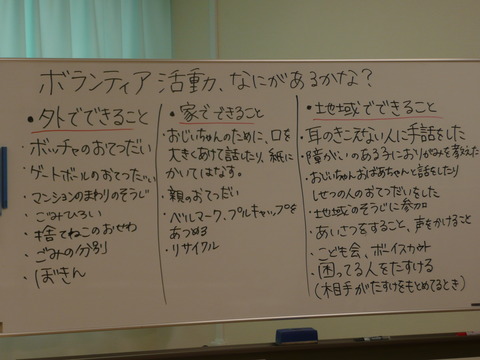 ボランティア活動、なにがあるかな？
・外でできること
・ボッチャのおてつだい
・ゲートボールのおてつだい
・マンションのまわりのそうじ
・ごみひろい
・捨てねこのおせわ
・ごみの分別
・ぼきん
・家でできること
・おじいちゃんのために、口を
大きくあけて話したり、紙に
かいてはなす。
・親のおてつだい
・ベルマーク、プルキャップを
あつめる
・リサイクル
・地域でできること
・耳のきこえない人に手話をした
・障がいのある子におりがみを教えた
・おじいちゃんおばあちゃんと話したり
しせつの人のおてつだいをした
・地域のそうじに参加
・あいさつをすること、声をかけること
・こども会、ボーイスカウト
・困ってる人をたすける
(相手がたすけをもとめてるとき)